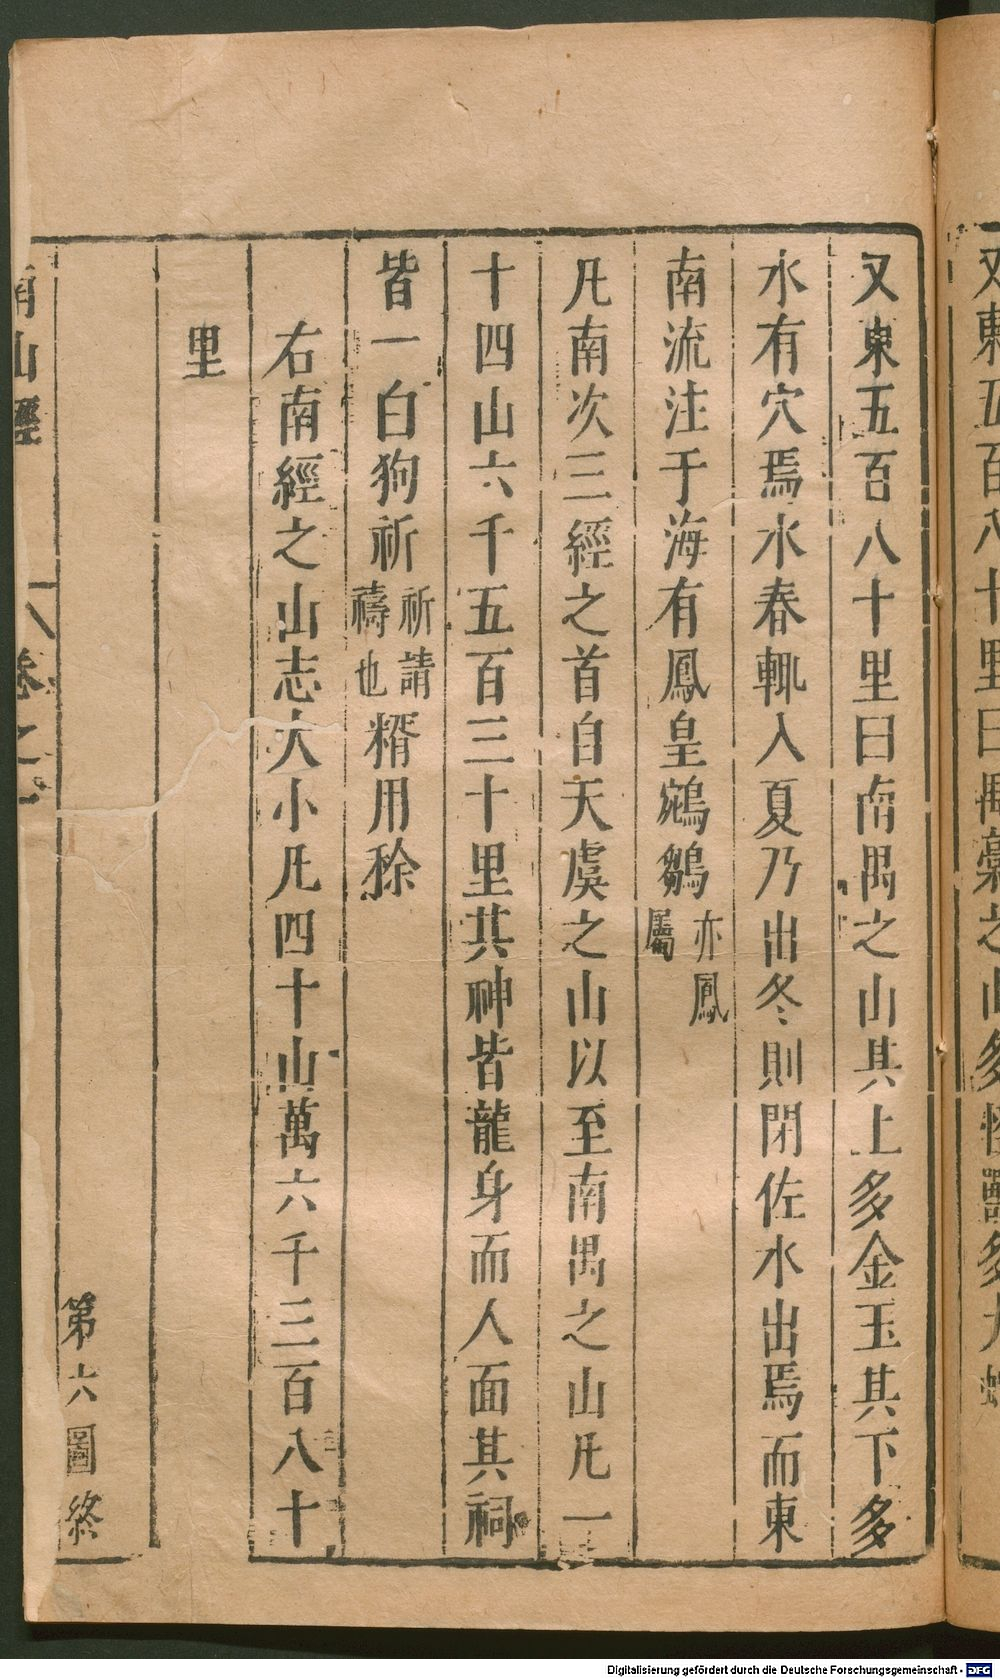 又東五百八十里曰南禺之山其上多金玉其下多
水有穴焉水春輒入夏乃出冬則閉佐水出焉而東
南流注于海有鳳皇鵷鶵亦鳳屬
凡南次三經之首自天虞之山以至南禺之山凡一
十四山六千五百三十里其神皆龍身而人面其祠
皆一白狗祈祈請禱也糈用稌
右南經之山志大小凡四十山萬六千三百八十
里
第六圖終
南山經 卷之一
Digitalisierung gefördert durch die Deutsche Forschungsgemeinschaft - DFG